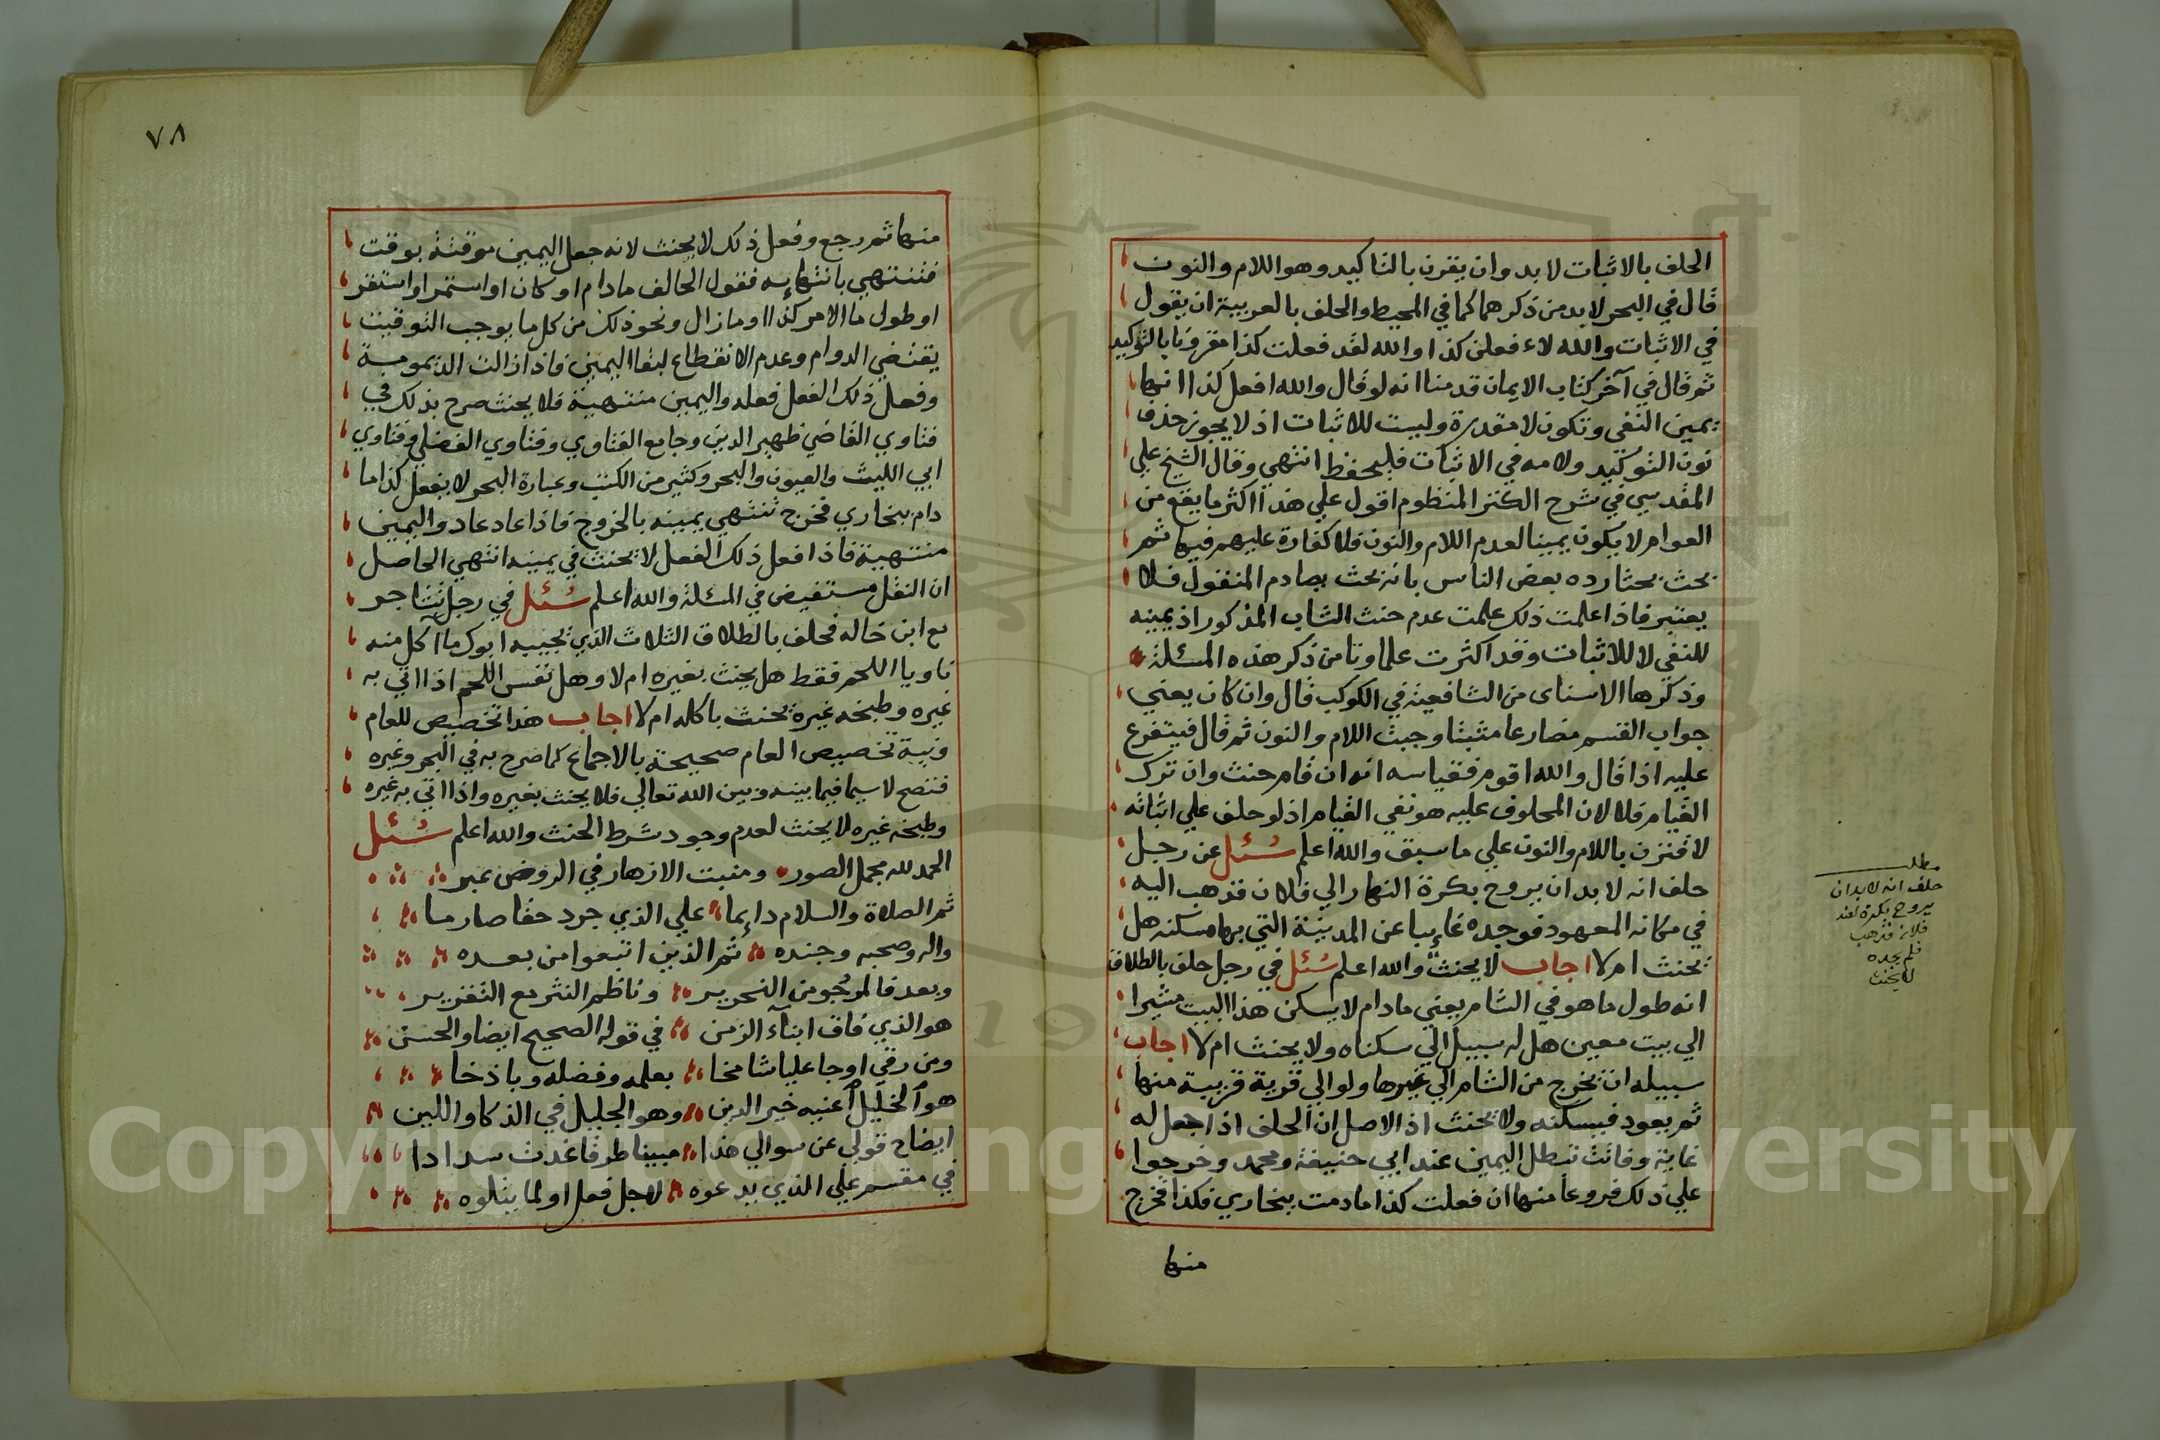 الحلف بالاثبات لا بد وان يقرن بالتاكيد وهو اللام والنون
قال في البحر لا بد من ذكرهما كما في المحيط والحلف بالعربية ان يقول
في الاثبات والله لا ء فعلن كذا والله لقد فعلت كذا مقرونا بالتوكيد
ثم قال في آخر كتاب الايمان قدمنا انه لو قال والله افعل كذا انها
يمين النفي وتكون لا مقدرة وليست للاثبات اذ لا يجوز حذف
نون التوكيد ولامه في الاثبات فليحفظ انتهي وقال الشيخ علي
المقدسي في شرح الكنز المنظوم اقول علي هذا اكثر ما يقع من
العوام لا يكون يمينا لعدم اللام والنون فلا كفارة عليهم فيها ثم
بحث بحثا رده بعض الناس بانه بحث يصادم المنقول فلا
يعتبر فاذا علمت ذلك علمت عدم حنث الشاب المذكور اذ يمينه
للنفي لا للاثبات وقد اكثرت علماونا من ذكر هذه المسئلة
وذكرها الاسناى من الشافعية في الكوكب قال وان كان يعني
جواب القسم مضارعا مثبتا وجبت اللام والنون ثم قال فيتفرع
عليه اذا قال والله اقوم فقياسه انه ان قام حنث وان ترك
القيام فلا لان المحلوف عليه هو نفي القيام اذ لو حلف علي اثباته
لاقترن باللام والنون علي ما سبق والله اعلم سئل عن رجل
حلف انه لا بد ان يروح بكرة النهار الي فلان فذهب اليه
في مكانه المعهود فوجده غايبا عن المدينة التي بها مسكنه هل
يحنث ام لا اجاب لا يحنث والله اعلم سئل في رجل حلف بالطلاق
انه طول ما هو في الشام يعني مادام لا يسكن هذا البيت مشيرا
الي بيت معين هل له سبيل الي سكناه ولا يحنث ام لا اجاب
سبيله ان يخرج من الشام الي غيرها ولو الي قرية قريبة منها
ثم يعود فيسكنه ولا يحنث اذ الاصل ان الحلف اذا جعل له
غاية وفاتت تبطل اليمين عند ابي حنيفة ومحمد وخرجوا
علي ذلك فروعا منها ان فعلت كذا مادمت ببخاري فكذا فخرج
منها
مطلب
حلف انه لا بد ان
يروح بكرة لعند
فلان فذهب
فلم يجده
لا يحنث
٧٨
منها ثم رجع وفعل ذلك لا يحنث لانه جعل اليمين موقتة بوقت
فتنتهي بانتهايه فقول الحالف مادام او كان او استمر او استقر
او طول ما الامر كذا او مازال ونحو ذلك من كل ما يوجب التوقيت
يقتضي الدوام وعدم الانقطاع لبقا اليمين فاذا زالت الديمومة
وفعل ذلك الفعل فعله واليمين منتهية فلا يحنث صرح بذلك في
فتاوي القاضي ظهير الدين وجامع الفتاوي وفتاوي الفضلي وفتاوي
ابي الليث والعيون والبحر وكثير من الكتب وعبارة البحر لا يفعل كذا ما
دام ببخاري فخرج تنتهي يمينه بالخروج فاذا عاد عاد واليمين
منتهية فاذا فعل ذلك الفعل لا يحنث في يمينه انتهي الحاصل
ان النقل مستفيض في المسئلة والله اعلم سئل في رجل تشاجر
مع ابن خاله فحلف بالطلاق الثلاث الذي يجيبه ابوك ما آكل منه
ناويا اللحم فقط هل يحنث بغيره ام لا وهل نفس اللحم اذا اتي به
غيره وطبخه غيره يحنث باكله ام لا اجاب هذا تخصيص للعام
ونية تخصيص العام صحيحة بالاجماع كما صرح به في البحر وغيره
فتصح لا سيما فيما بينه وبين الله تعالي فلا يحنث بغيره واذا اتي به غيره
وطبخه غيره لا يحنث لعدم وجود شرط الحنث والله اعلم سئل
الحمد لله مجمل الصور ومنبت الازهار في الروض عبر
ثم الصلاة والسلام دايما علي الذي جرد حقا صارما
واله وصحبه وجنده ثم الذين اتبعوا من بعده
وبعد فالمرجو من النحرير وناظم النثر مع التقرير
هو الذي فاق ابناء الزمن في قوله الصحيح ايضا والحسن
ومن رقي اوجا عليا شامخا بعلمه وفضله وباذخا
هو الخليل اعنيه خير الدين وهو الجليل في الذكا واللين
ايضاح قولي عن سوالي هذا مبينا طرقا غدت سدادا
في مقسم علي الذي يدعوه لاجل فعل او لما يتلوه